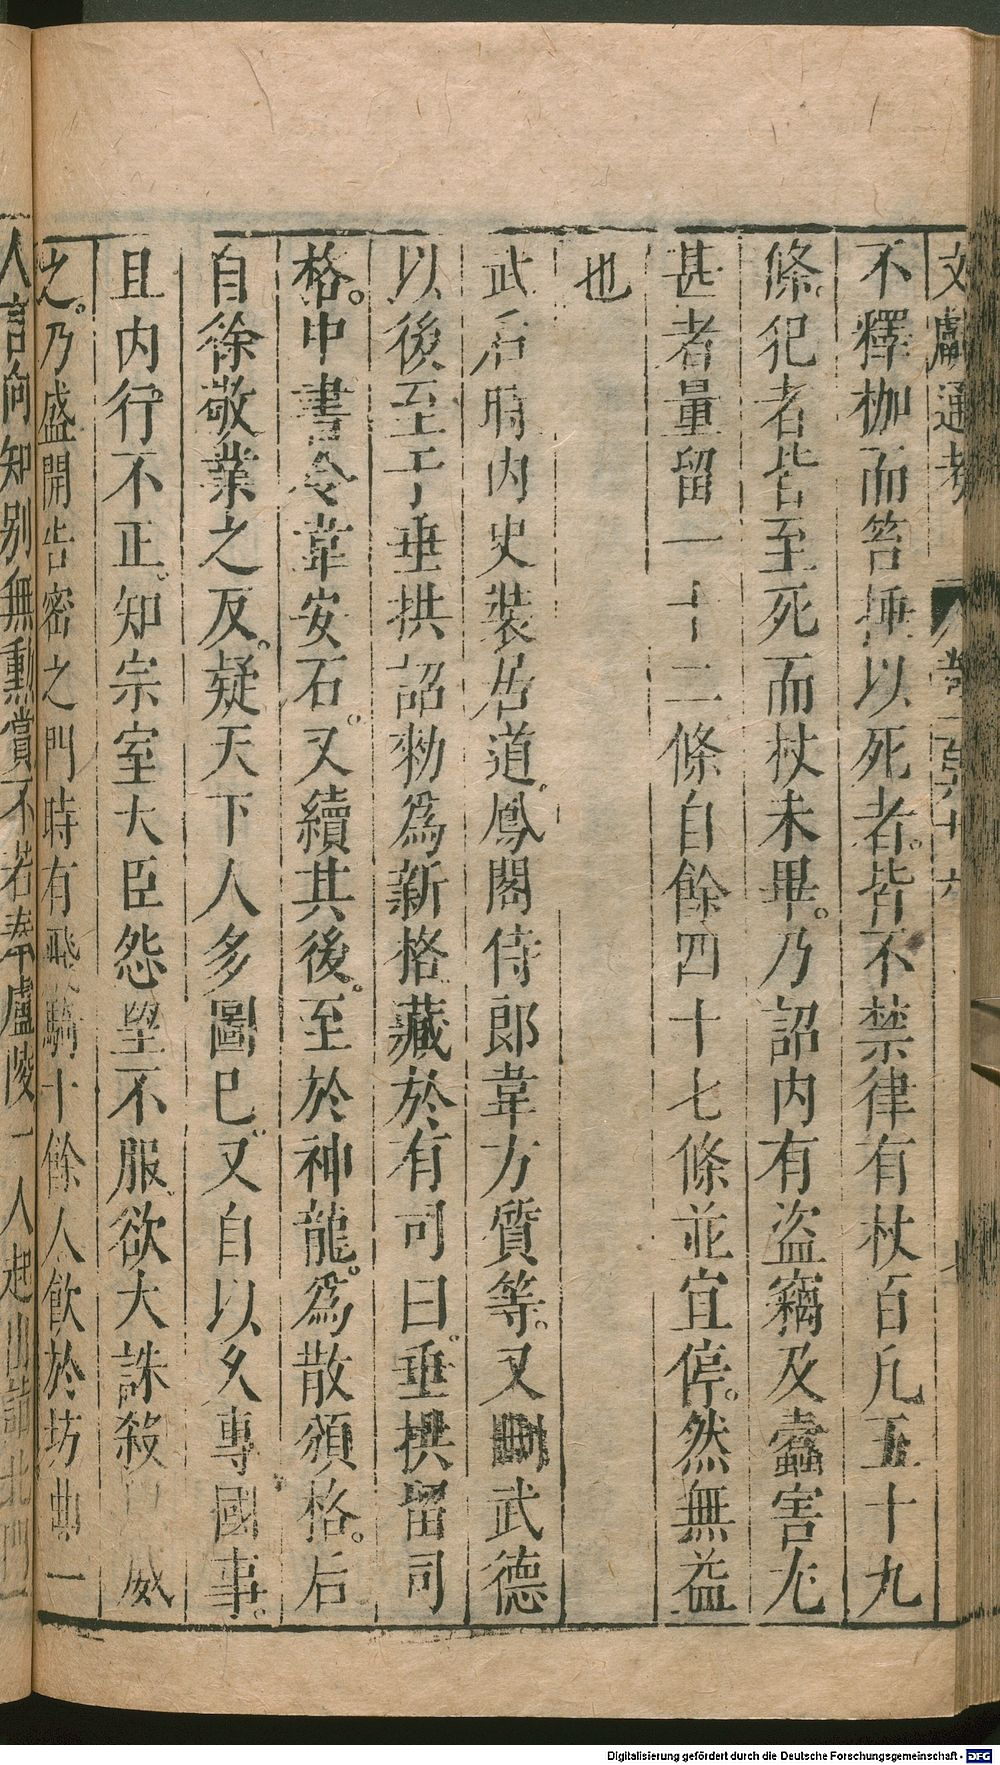 文獻通考 卷一百六十六
不釋枷而笞捶以死者皆不禁律有杖百凡五十九
條犯者皆至死而杖未畢乃詔内有盜竊及蠹害尤
甚者量留一十二條自餘四十七條並宜停然無益
也
武后時内史裴居道鳳閣侍郎韋方質等又刪武德
以後至于垂拱詔勑爲新格藏於有司曰垂拱留司
格中書令韋安石又續其後至於神龍爲散頒格后
自徐敬業之反疑天下人多圖已又自以久專國事
且内行不正知宗室大臣怨望不服欲大誅殺 威
之乃盛開告密之門時有飛騎十餘人飲於坊曲一
人言向知别無勳賞不若奉廬陵一人起出詣北門
Digitalisierung gefördert durch die Deutsche Forschungsgemeinschaft - DFG